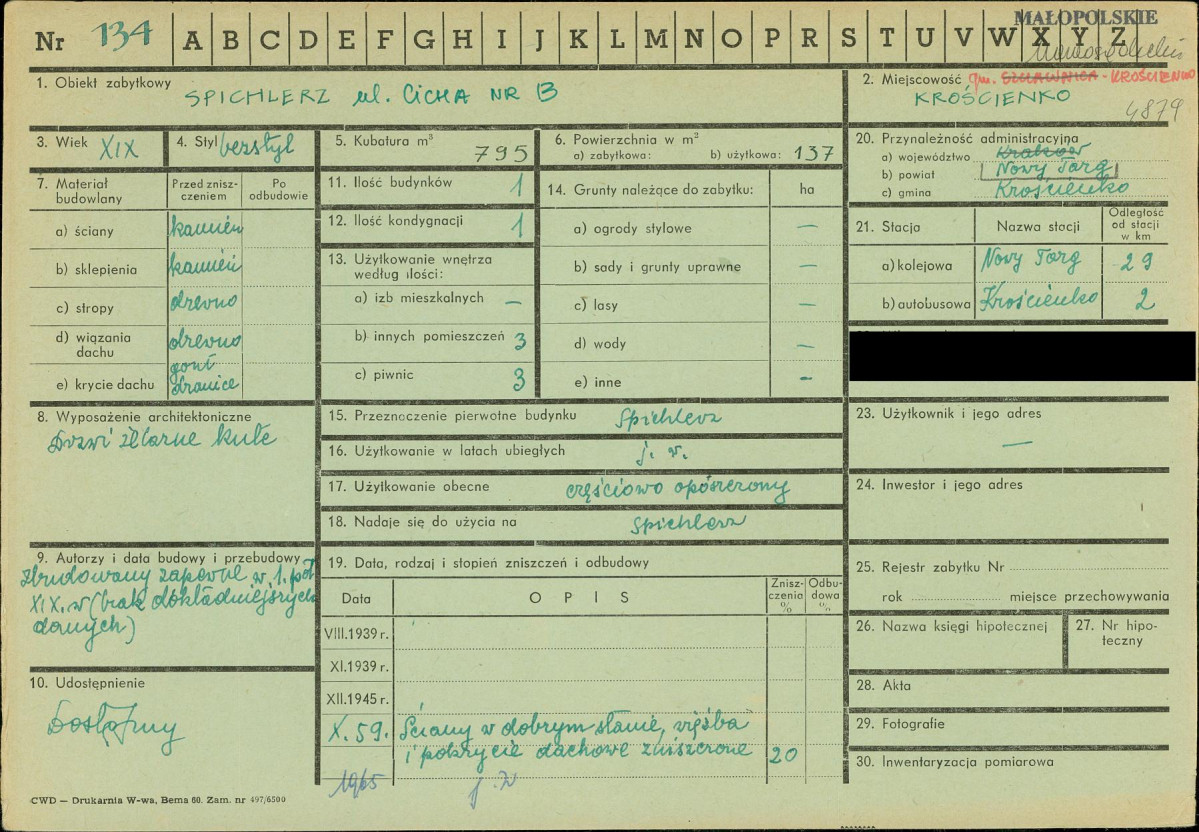 MAŁOPOLSKIE
Nr 134 A B C D E F G H I J K L M N O P R S T U V W X Y Z
1. Obiekt zabytkowy
SPICHLERZ ul. CICHA NR 13
2. Miejscowość gm. SZCZAWNICA - KROŚCIENKO
KROŚCIENKO
4879
3. Wiek XIX
4. Styl bezstyl
5. Kubatura m³
795
6. Powierzchnia w m²
a) zabytkowa: b) użytkowa: 137
7. Materiał budowlany
Przed znisz-
czeniem
Po
odbudowie
a) ściany kamień
b) sklepienia kamień
c) stropy drewno
d) wiązania
dachu drewno
gont
e) krycie dachu dranice
8. Wyposażenie architektoniczne
Drzwi żelazne kute
9. Autorzy i data budowy i przebudowy
Zbudowany zapewne w 1. poł.
XIX. w (brak dokładniejszych
danych)
10. Udostępnienie
Dostępny
11. Ilość budynków 1
12. Ilość kondygnacji 1
13. Użytkowanie wnętrza
według ilości:
a) izb mieszkalnych —
b) innych pomieszczeń 3
c) piwnic 3
14. Grunty należące do zabytku: ha
a) ogrody stylowe —
b) sady i grunty uprawne —
c) lasy —
d) wody —
e) inne -
15. Przeznaczenie pierwotne budynku Spichlerz
16. Użytkowanie w latach ubiegłych j. w.
17. Użytkowanie obecne częściowo opószczony
18. Nadaje się do użycia na Spichlerz
19. Data, rodzaj i stopień zniszczeń i odbudowy
Data
O P I S
Znisz-
czenia
%
Odbu-
dowa
%
VIII.1939 r.
XI.1939 r.
XII.1945 r.
X. 59. Ściany w dobrym stanie, więźba
i pokrycie dachowe zniszczone 20
1965 j. w
20. Przynależność administracyjna
a) województwo Kraków
b) powiat Nowy Targ
c) gmina Krościenko
21. Stacja
Nazwa stacji
Odległość
od stacji
w km
a) kolejowa Nowy Targ 29
b) autobusowa Krościenko 2
23. Użytkownik i jego adres
—
24. Inwestor i jego adres
25. Rejestr zabytku Nr
rok miejsce przechowywania
26. Nazwa księgi hipotecznej
27. Nr hipo-
teczny
28. Akta
29. Fotografie
30. Inwentaryzacja pomiarowa
CWD — Drukarnia W-wa, Bema 60. Zam. nr 497/6500